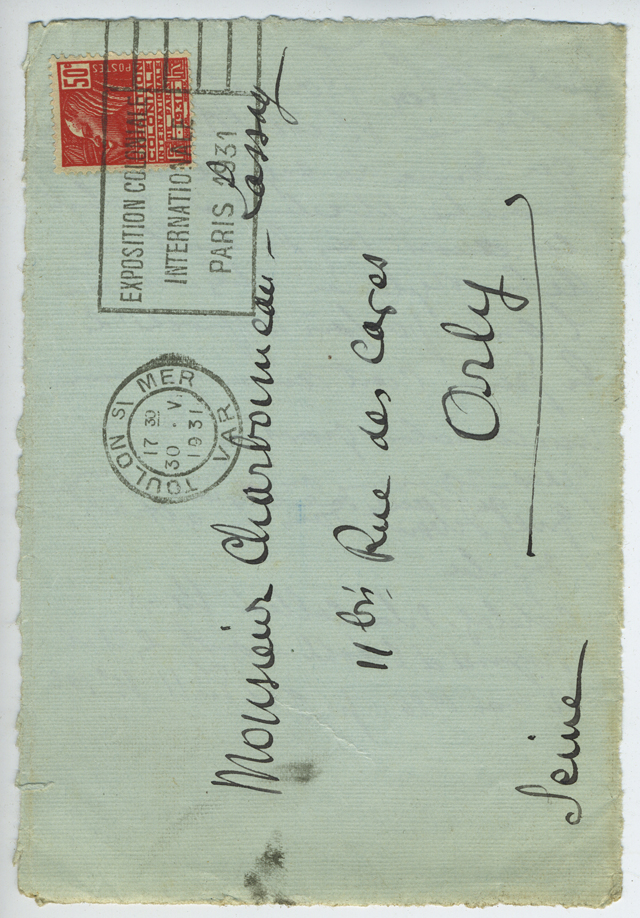 50c
POSTES
EXPOSITION
COLONIALE
INTERNATIONALE
PARIS 1931
EXPOSITION COLONIALE
INTERNATIONALE
PARIS 1931
TOULON SI MER
17 30
30 · V.
1931
VAR
Monsieur Charbonneau - Lassay
11 bis Rue des Caves
Orly
Seine